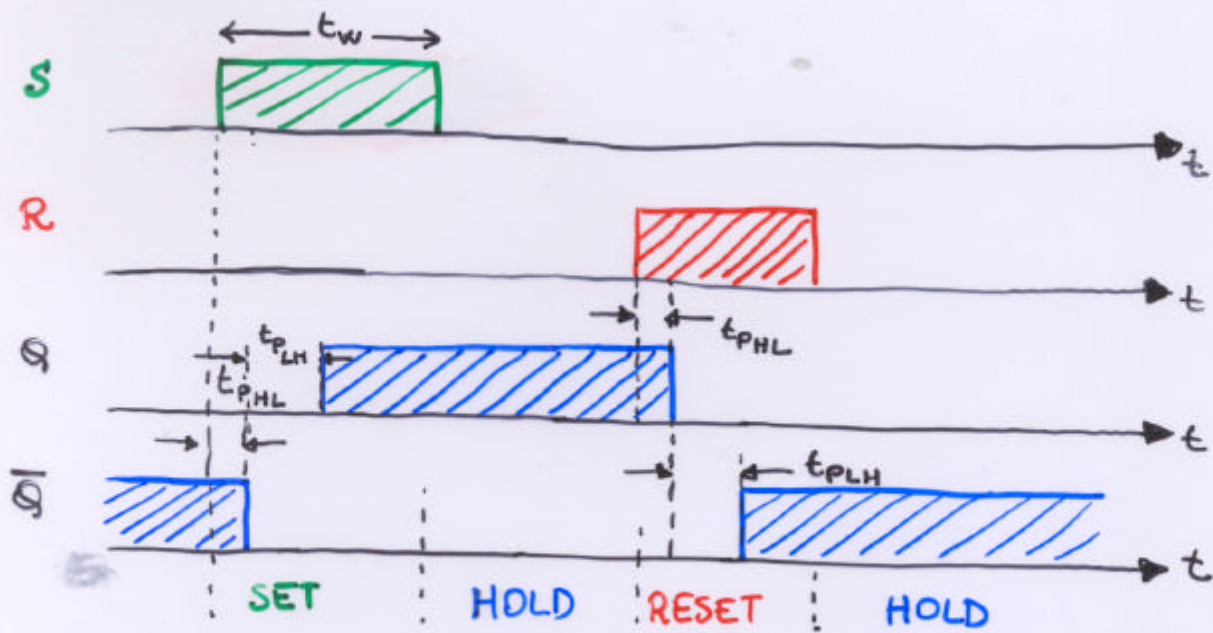 t_W
S
t
R
t
t_PHL
Q
t_PLH
t_PHL
t
Q̅
t_PLH
t
SET HOLD RESET HOLD